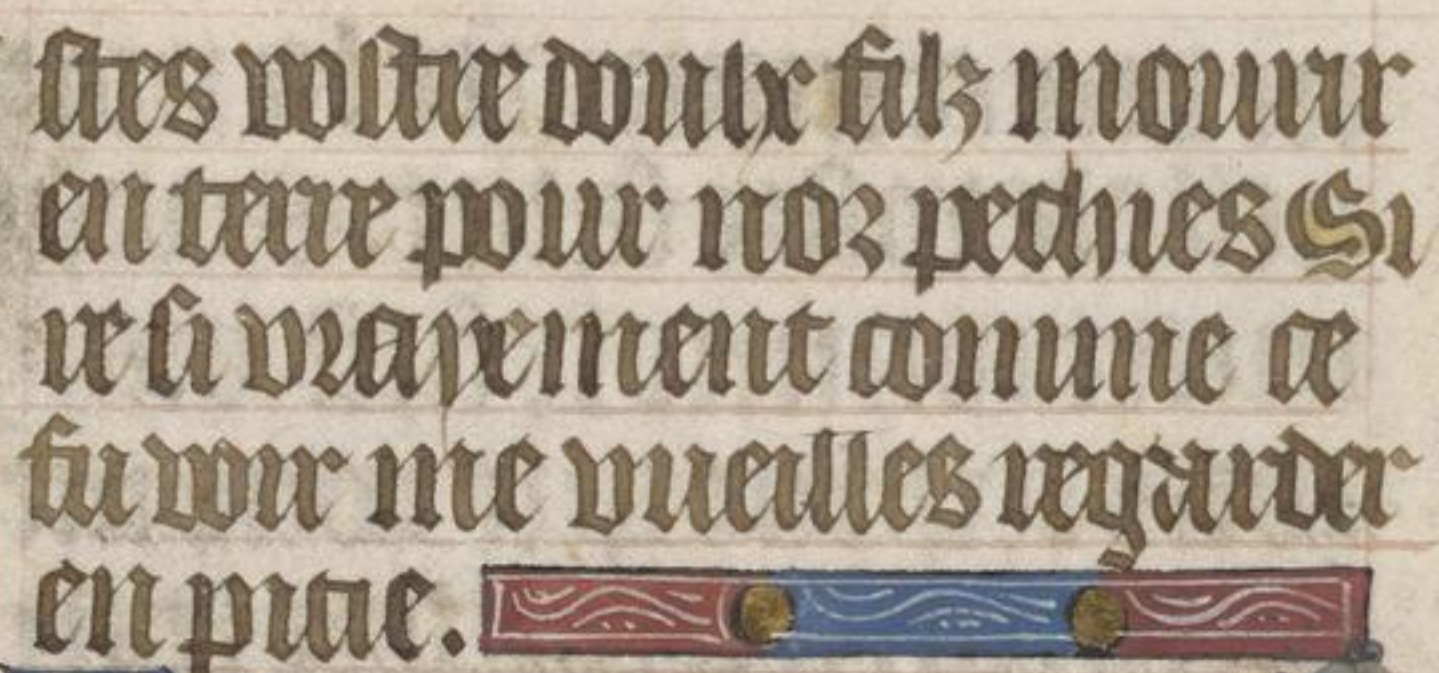 stes vostre doulx filz mourir
en terre pour noz pechies Si
re si vrayement comme ce
fu voir me vueilles regarder
en pitie.